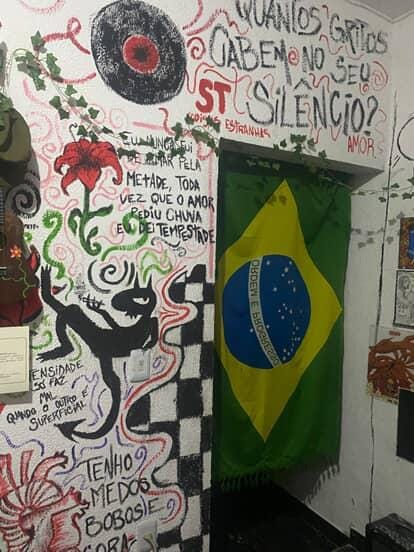 QUANTOS GRITOS
CABEM NO SEU
SILÊNCIO?
ST
COISAS ESTRANHAS
AMOR
EU NUNCA FUI
DE AMAR PELA
METADE, TODA
VEZ QUE O AMOR
PEDIU CHUVA
EU DEI TEMPESTADE
ORDEM E PROGRESSO
ENSIDADE
SÓ FAZ
MAL
QUANDO O OUTRO É
SUPERFICIAL
TENHO
MEDOS
BOBOS E
CORA